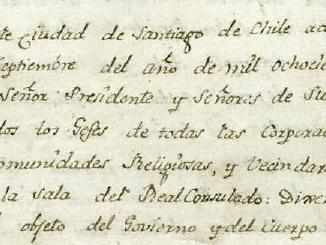 te Ciudad de Santiago de Chile a
Septiembre del año de mil ochocie
Señor Presidente y Señores de Su
dos los Gefes de todas las Corporac
comunidades Religiosas, y Vecindar
la sala del Real Consulado: Dixe
el objeto del Govierno y del Cuerpo